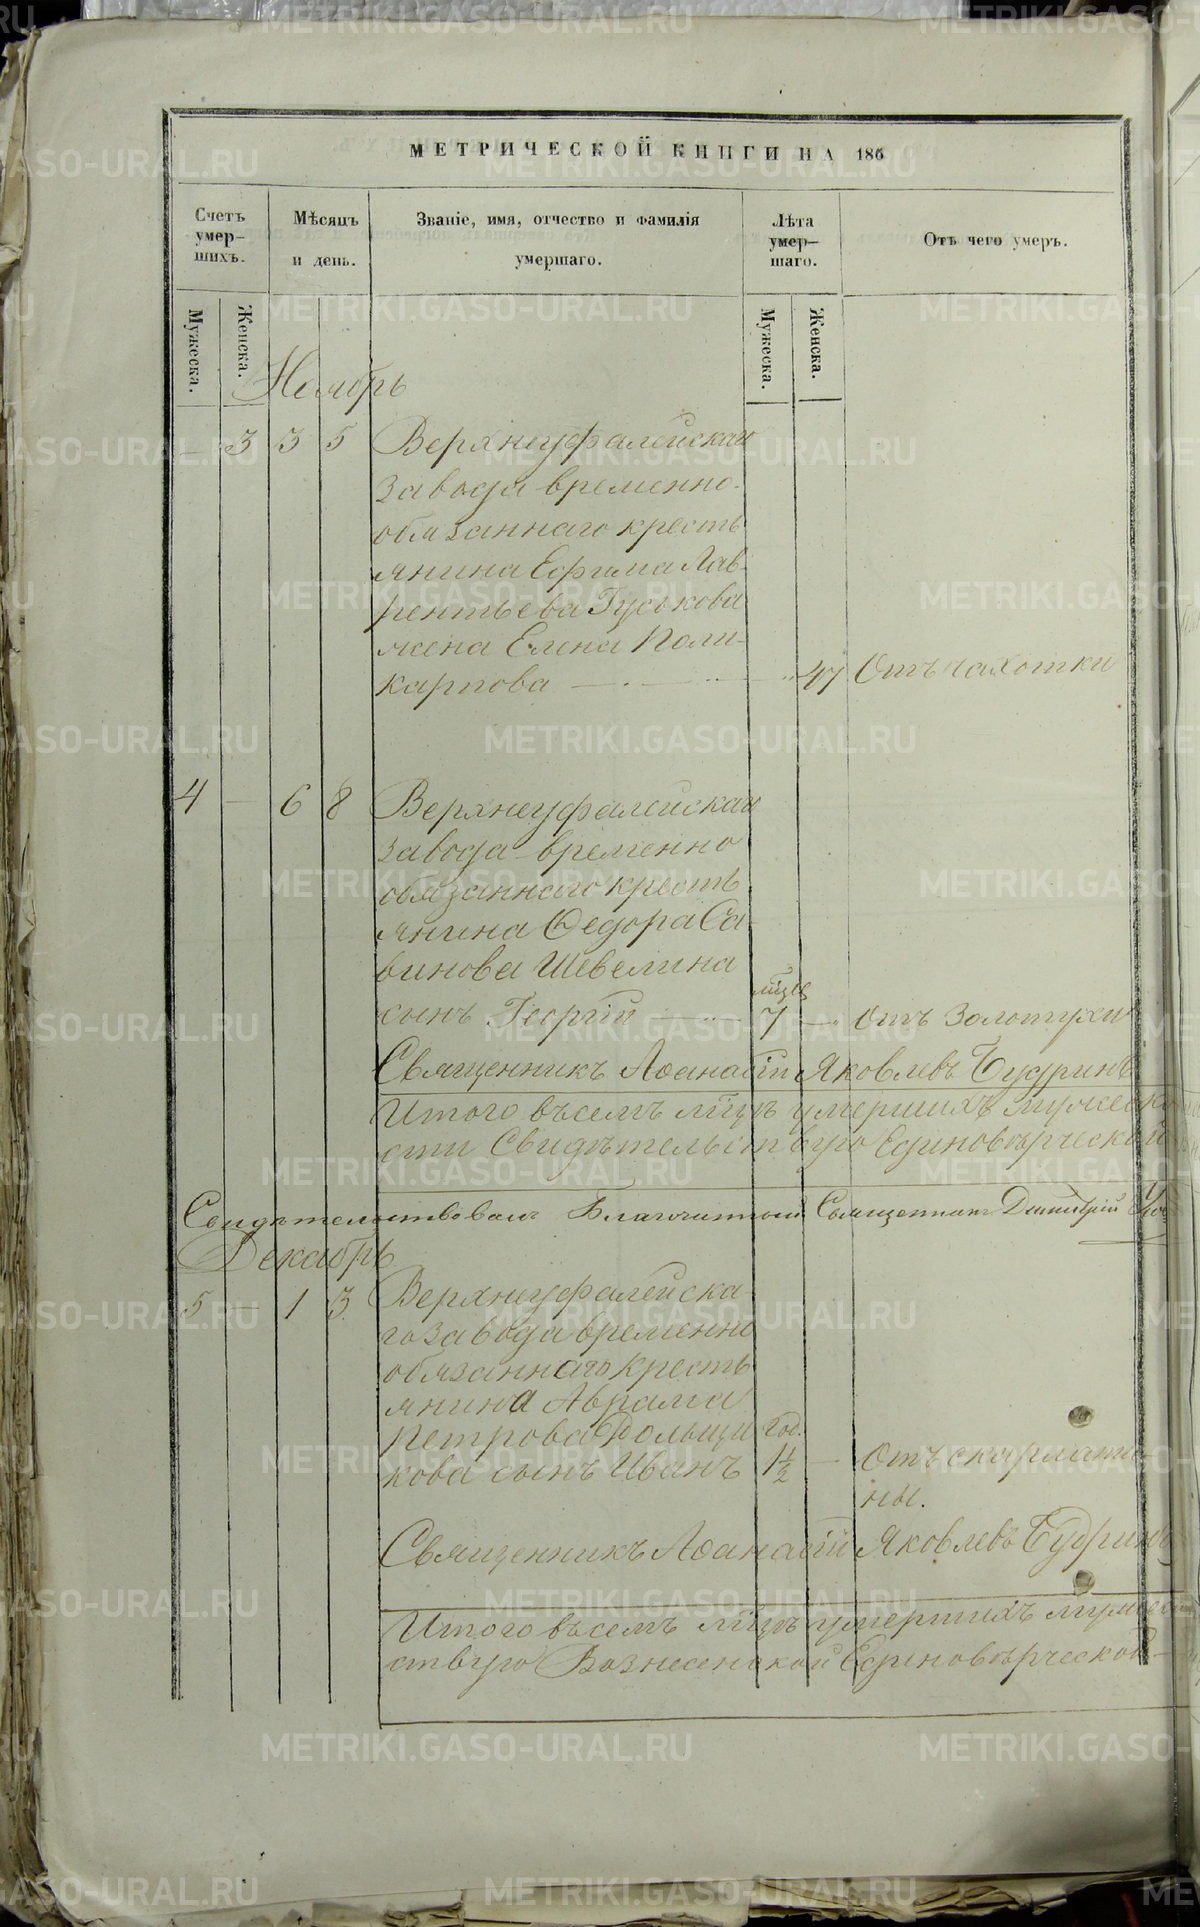 МЕТРИЧЕСКОЙ КНИГИ НА 186
Счетъ умер-шихъ.
Мѣсяцъ и день.
Званіе, имя, отчество и фамилія умершаго.
Лѣта умер-шаго.
Отъ чего умеръ.
Мужеска.
Женска.
Мужеска.
Женска.
Ноябрь
— 3 3 5 Верхнеуфалейскаи
завода временно-
обязаннаго кресть
янина Ефима Лав-
рентьева Гуськова
жена Елена Поли-
карпова — 47 Отъ чахотки
4 — 6 8 Верхнеуфалейскаи
завода временно
обязаннаго кресть
янина Ѳедора Са-
винова Шевелина
мѣсяц
сынъ Георгій — 7 — отъ Золотухи
Священникъ Аѳанасій Яковлевъ Будринъ
Итого всѣмъ лицъ умершихъ мужеска
сти Свидѣтельствую Единовѣрческой
Свидѣтельствовалъ Благочинный Священникъ Димитрій
Декабрь
5 — 1 3 Верхнеуфалейска
го завода временно
обязаннаго кресть
янина Аврама
Петрова Польщи год.
кова сынъ Иванъ 1½ — Отъ скарлати-
ны.
Священникъ Аѳанасій Яковлевъ Будринъ
Итого всѣмъ лицъ умершихъ
ствую Вознесенской Единовѣрческой
METRIKI.GASO-URAL.RU